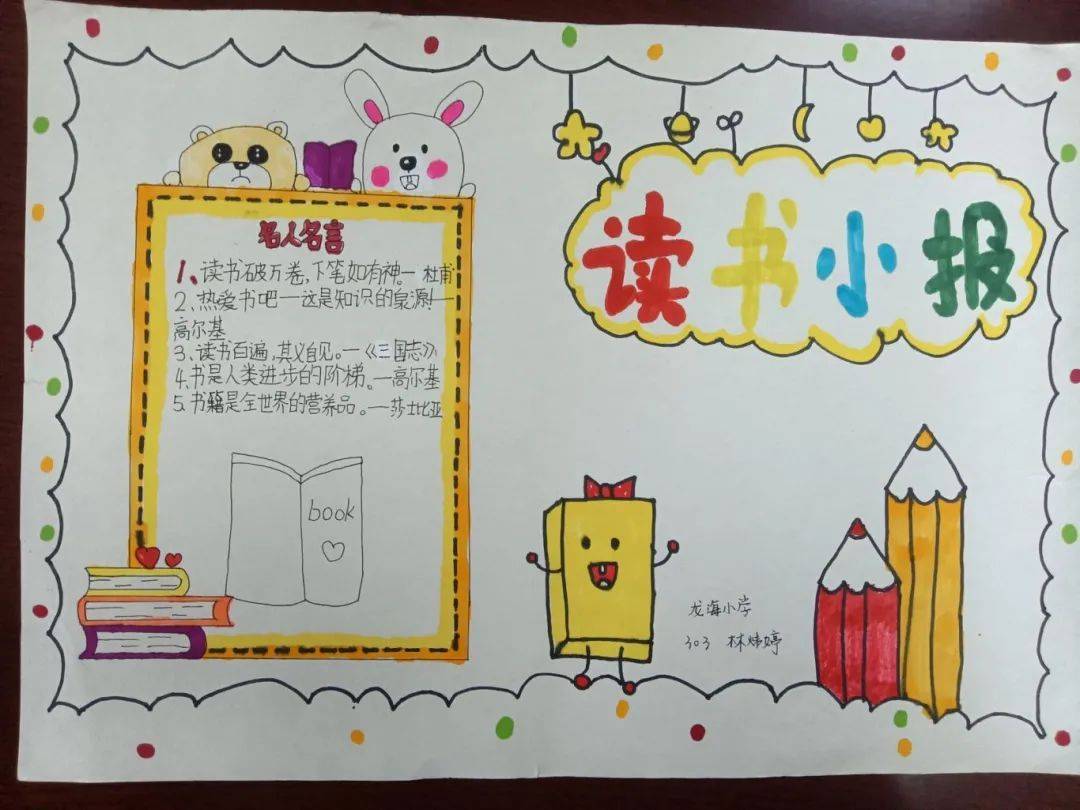 读书小报
名人名言
1、读书破万卷，下笔如有神一 杜甫
2、热爱书吧一这是知识的泉源！一
高尔基
3、读书百遍，其义自见。一《三国志》
4、书是人类进步的阶梯。一高尔基
5、书籍是全世界的营养品。一莎士比亚
book
龙海小学
303 林炜婷